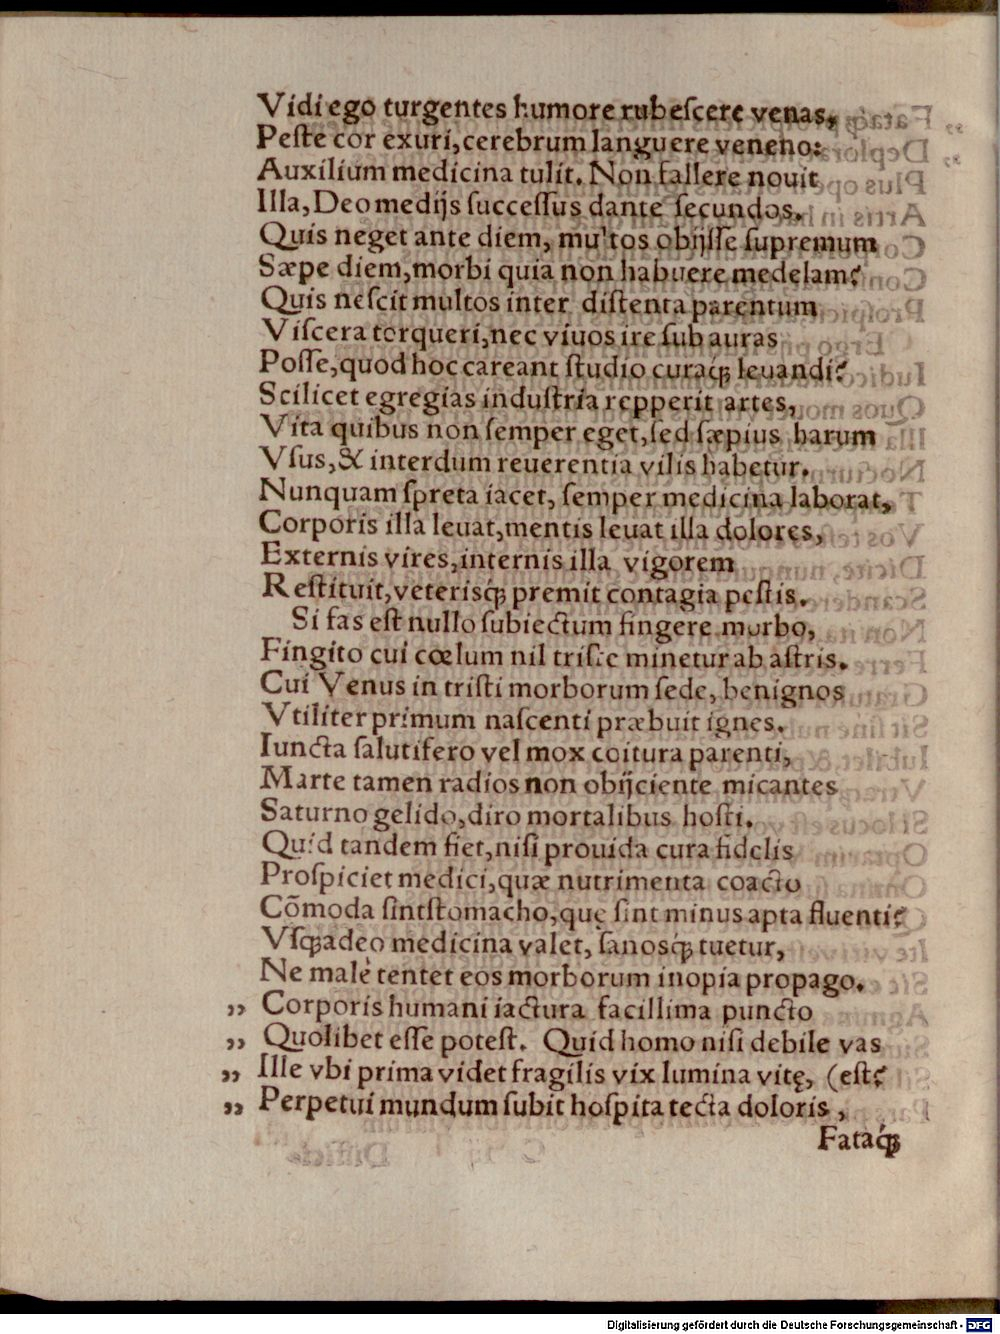 Vidi ego turgentes humore rubeſcere venas,
Peſte cor exuri, cerebrum languere veneno:
Auxilium medicina tulit. Non fallere nouit
Illa, Deo medijs ſucceſſus dante ſecundos.
Quis neget ante diem, multos obijſſe ſupremum
Sæpe diem, morbi quia non habuere medelam?
Quis neſcit multos inter diſtenta parentum
Viſcera torqueri, nec viuos ire ſub auras
Poſſe, quod hoc careant ſtudio curaq́ꝫ leuandi?
Scilicet egregias induſtria repperit artes,
Vita quibus non ſemper eget, ſed ſæpius harum
Vſus, & interdum reuerentia vilis habetur.
Nunquam ſpreta iacet, ſemper medicina laborat,
Corporis illa leuat, mentis leuat illa dolores,
Externis vires, internis illa vigorem
Reſtituit, veterisq́ꝫ premit contagia peſtis.
Si fas eſt nullo ſubiectum fingere morbo,
Fingito cui cœlum nil triſte minetur ab aſtris.
Cui Venus in triſti morborum ſede, benignos
Vtiliter primum naſcenti præbuit ignes.
Iuncta ſalutifero vel mox coitura parenti,
Marte tamen radios non obijciente micantes
Saturno gelido, diro mortalibus hoſti.
Quid tandem fiet, niſi prouida cura fidelis
Proſpiciet medici, quæ nutrimenta coacto
Cõmoda ſint ſtomacho, quę ſint minus apta fluenti?
Vſqꝫadeo medicina valet, ſanosq́ꝫ tuetur,
Ne malè tentet eos morborum inopia propago.
„ Corporis humani iactura facillima puncto
„ Quolibet eſſe poteſt. Quid homo niſi debile vas
„ Ille vbi prima videt fragilis vix lumina vitę, (eſt?
„ Perpetui mundum ſubit hoſpita tecta doloris,
Fataq́ꝫ
Digitalisierung gefördert durch die Deutsche Forschungsgemeinschaft - DFG